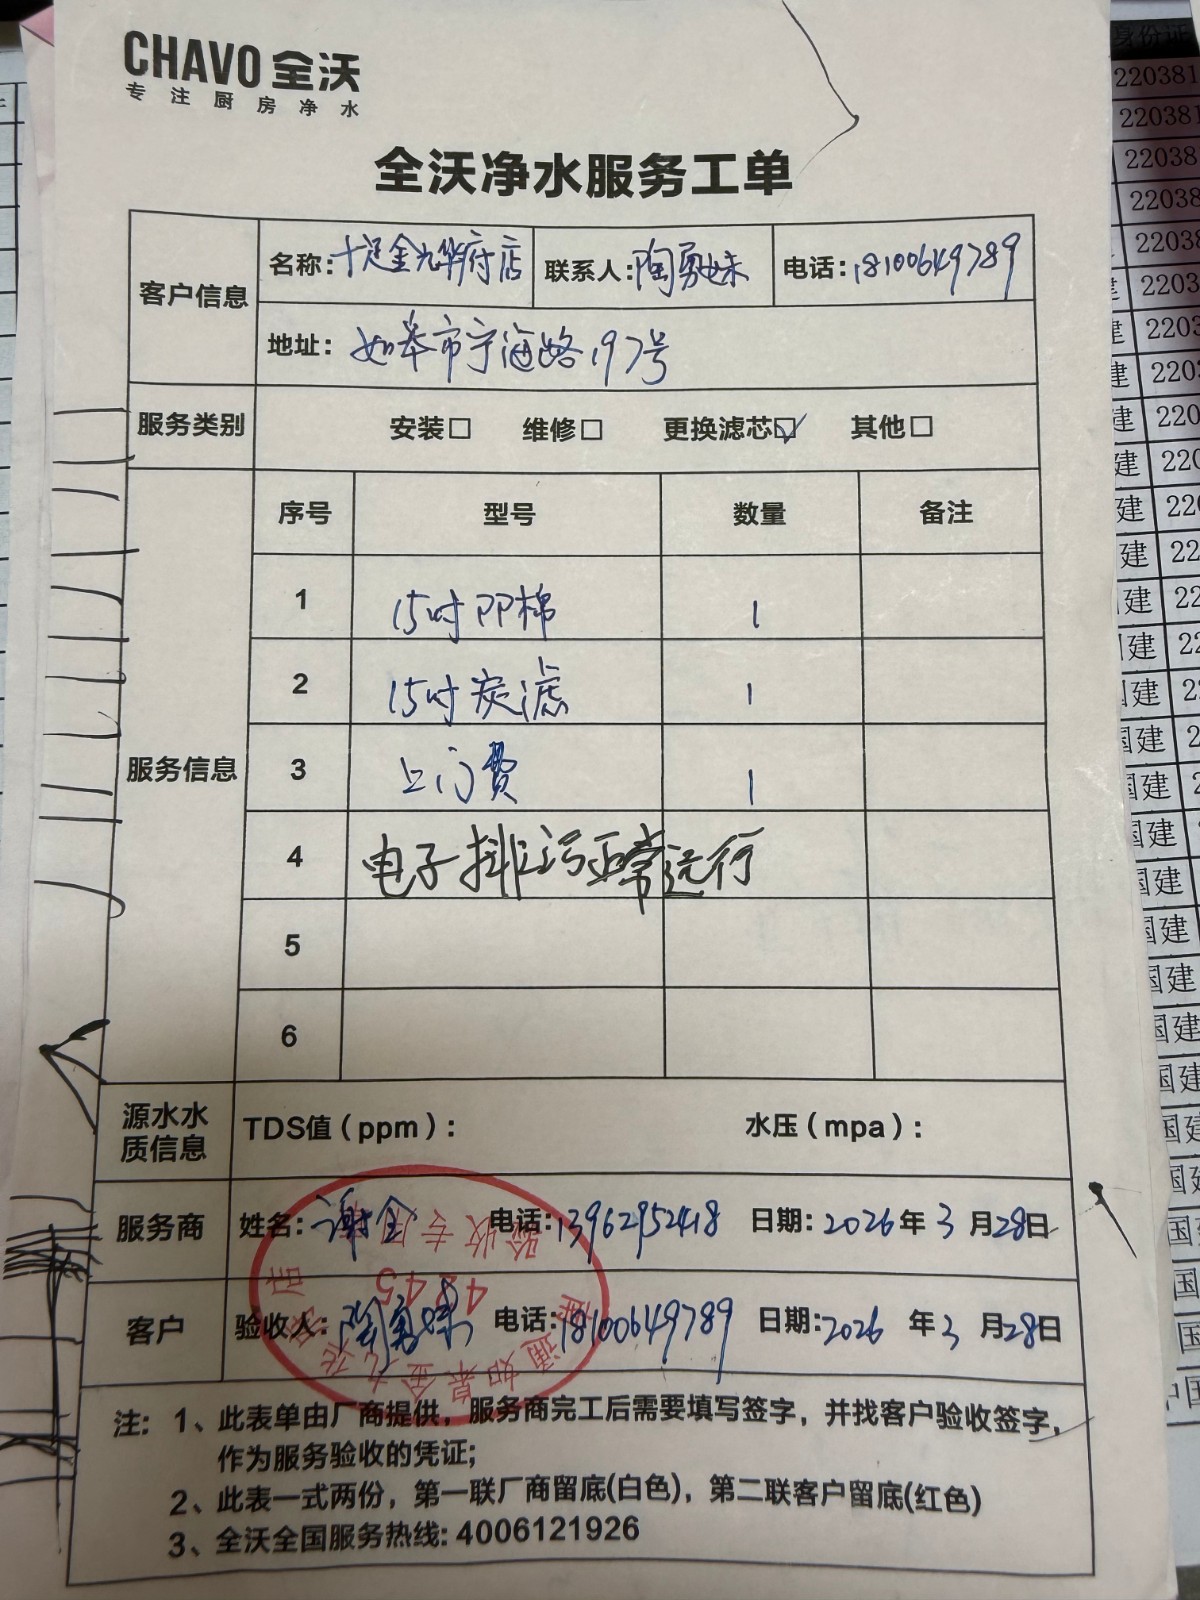 CHAVO 全沃
专注厨房净水
全沃净水服务工单
客户信息 名称:十足金九华府店 联系人:陶勇妹 电话:18100649789
地址:如皋市宁海路197号
服务类别 安装□ 维修□ 更换滤芯☑ 其他□
服务信息
序号 型号 数量 备注
1 15吋PP棉 1
2 15吋炭滤 1
3 上门费 1
4 电子排污正常运行
5
6
源水水质信息 TDS值(ppm): 水压(mpa):
服务商 姓名:谢全 电话:13962952418 日期:2026年3月28日
客户 验收人:陶勇妹 电话:18100649789 日期:2026年3月28日
验收专用章
4845
注: 1、此表单由厂商提供,服务商完工后需要填写签字,并找客户验收签字,
作为服务验收的凭证;
2、此表一式两份,第一联厂商留底(白色),第二联客户留底(红色)
3、全沃全国服务热线:4006121926
身份证
220381
220381
22038
22038